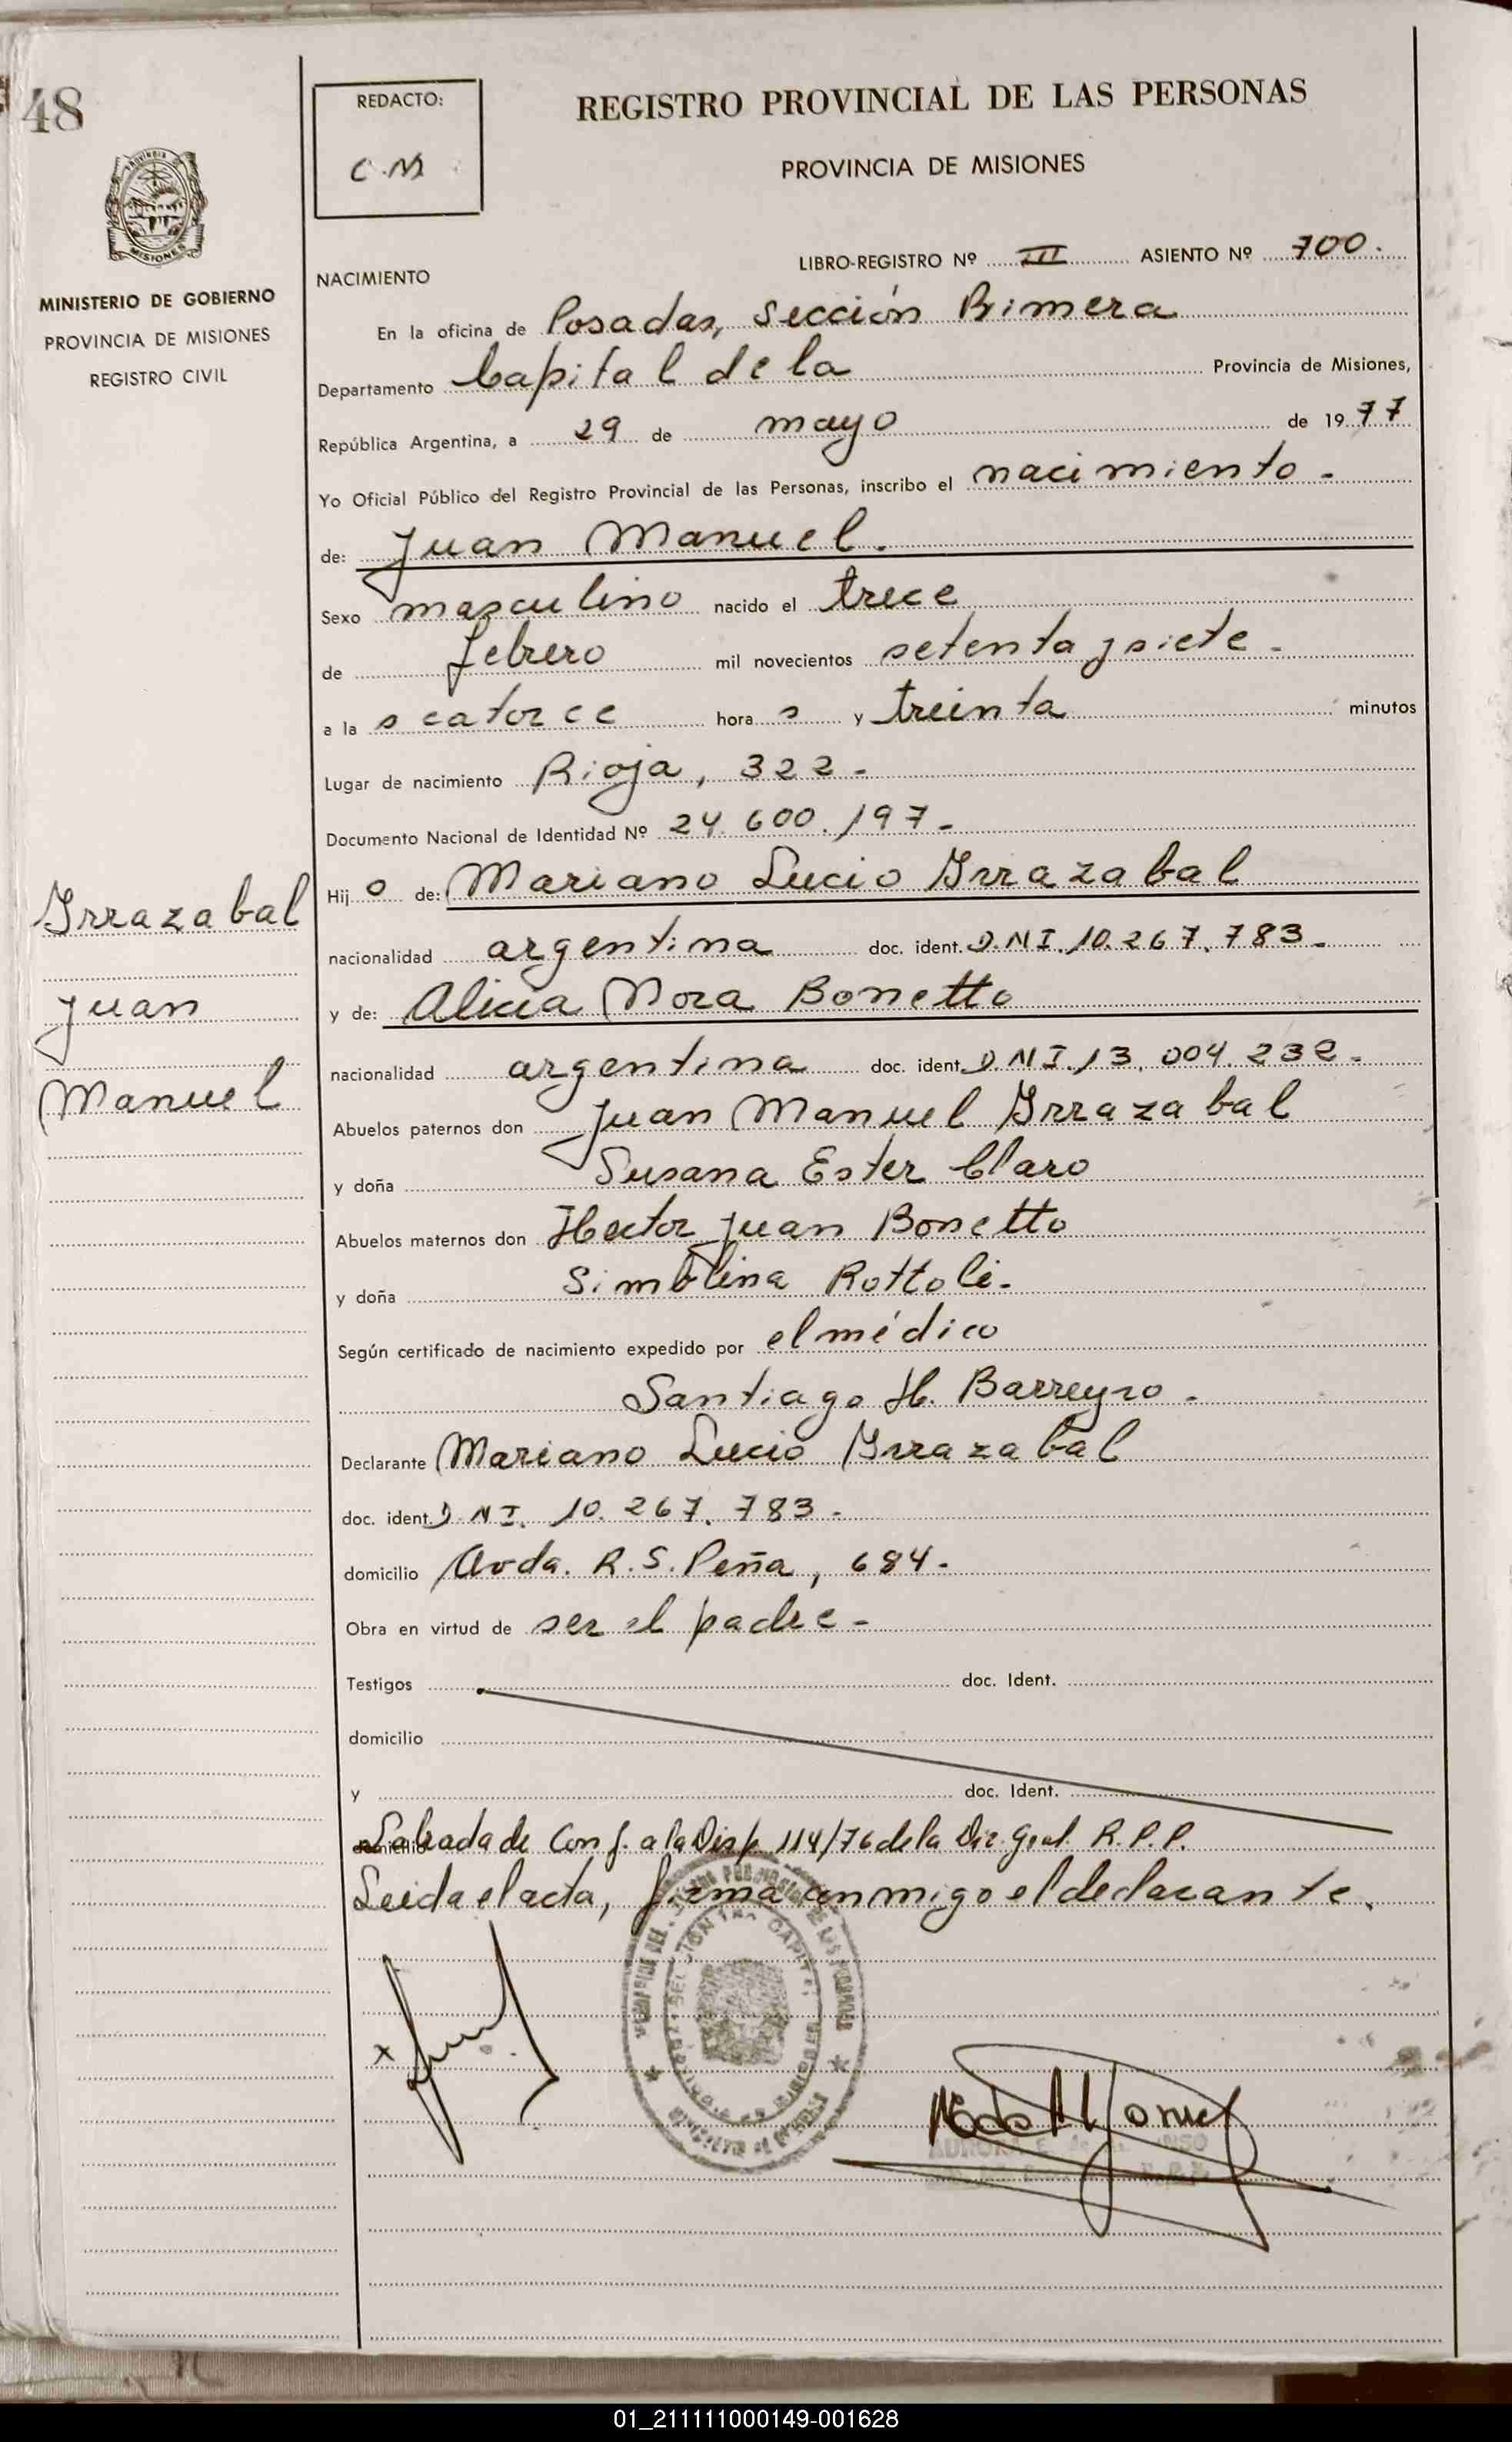 48
REDACTO:
C.M
REGISTRO PROVINCIAL DE LAS PERSONAS
PROVINCIA DE MISIONES
MISIONES
MINISTERIO DE GOBIERNO
PROVINCIA DE MISIONES
REGISTRO CIVIL
LIBRO-REGISTRO Nº III ASIENTO Nº 700.
NACIMIENTO
En la oficina de Posadas, Sección Primera
Departamento Capital de la Provincia de Misiones,
República Argentina, a 29 de mayo de 1977
Yo Oficial Público del Registro Provincial de las Personas, inscribo el nacimiento -
de: Juan Manuel.
Sexo masculino nacido el trece
de febrero mil novecientos setenta y siete -
a la s catorce hora s y treinta minutos
Lugar de nacimiento Rioja, 322 -
Documento Nacional de Identidad Nº 24.600.197 -
Hij o de: Mariano Lucio Irrazabal
nacionalidad argentina doc. ident. D.N.I. 10.267.783 -
y de: Alicia Nora Bonetto
nacionalidad argentina doc. ident. D.N.I. 13.004.232 -
Abuelos paternos don Juan Manuel Irrazabal
y doña Susana Ester Claro
Abuelos maternos don Hector Juan Bonetto
y doña Simblina Rottoli -
Según certificado de nacimiento expedido por el médico
Santiago H. Barreyro -
Declarante Mariano Lucio Irrazabal
doc. ident. D.N.I. 10.267.783 -
domicilio Avda. R. S. Peña, 684 -
Obra en virtud de ser el padre -
Testigos doc. Ident.
domicilio
y doc. Ident.
Labrada de Conf. a la Disp. 114/76 de la Dir. Gral. R.P.P.
Leida el acta, firma conmigo el declarante.
Irrazabal
Juan
Manuel
01_211111000149-001628